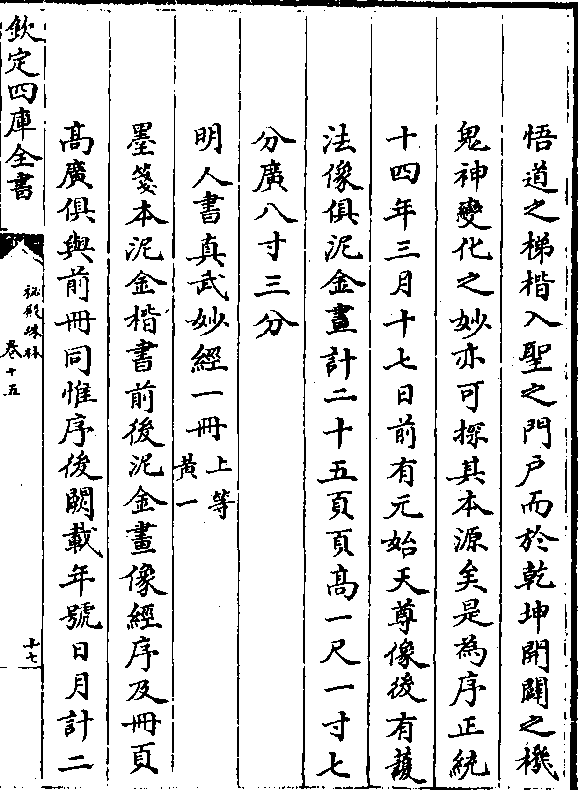 悟道之梯楷入聖之門戸而於乾坤開闢之機
鬼神變化之妙亦可探其本源矣是為序正統
十四年三月十七日前有元始天尊像後有護
法像俱泥金畫計二十五頁頁髙一尺一寸七
分廣八寸三分
明人書真武妙經一冊上等
黄一
墨箋本泥金楷書前後泥金畫像經序及冊頁
髙廣俱與前冊同惟序後闕載年號日月計二
欽定四庫全書
秘殿珠林
卷十五
十七